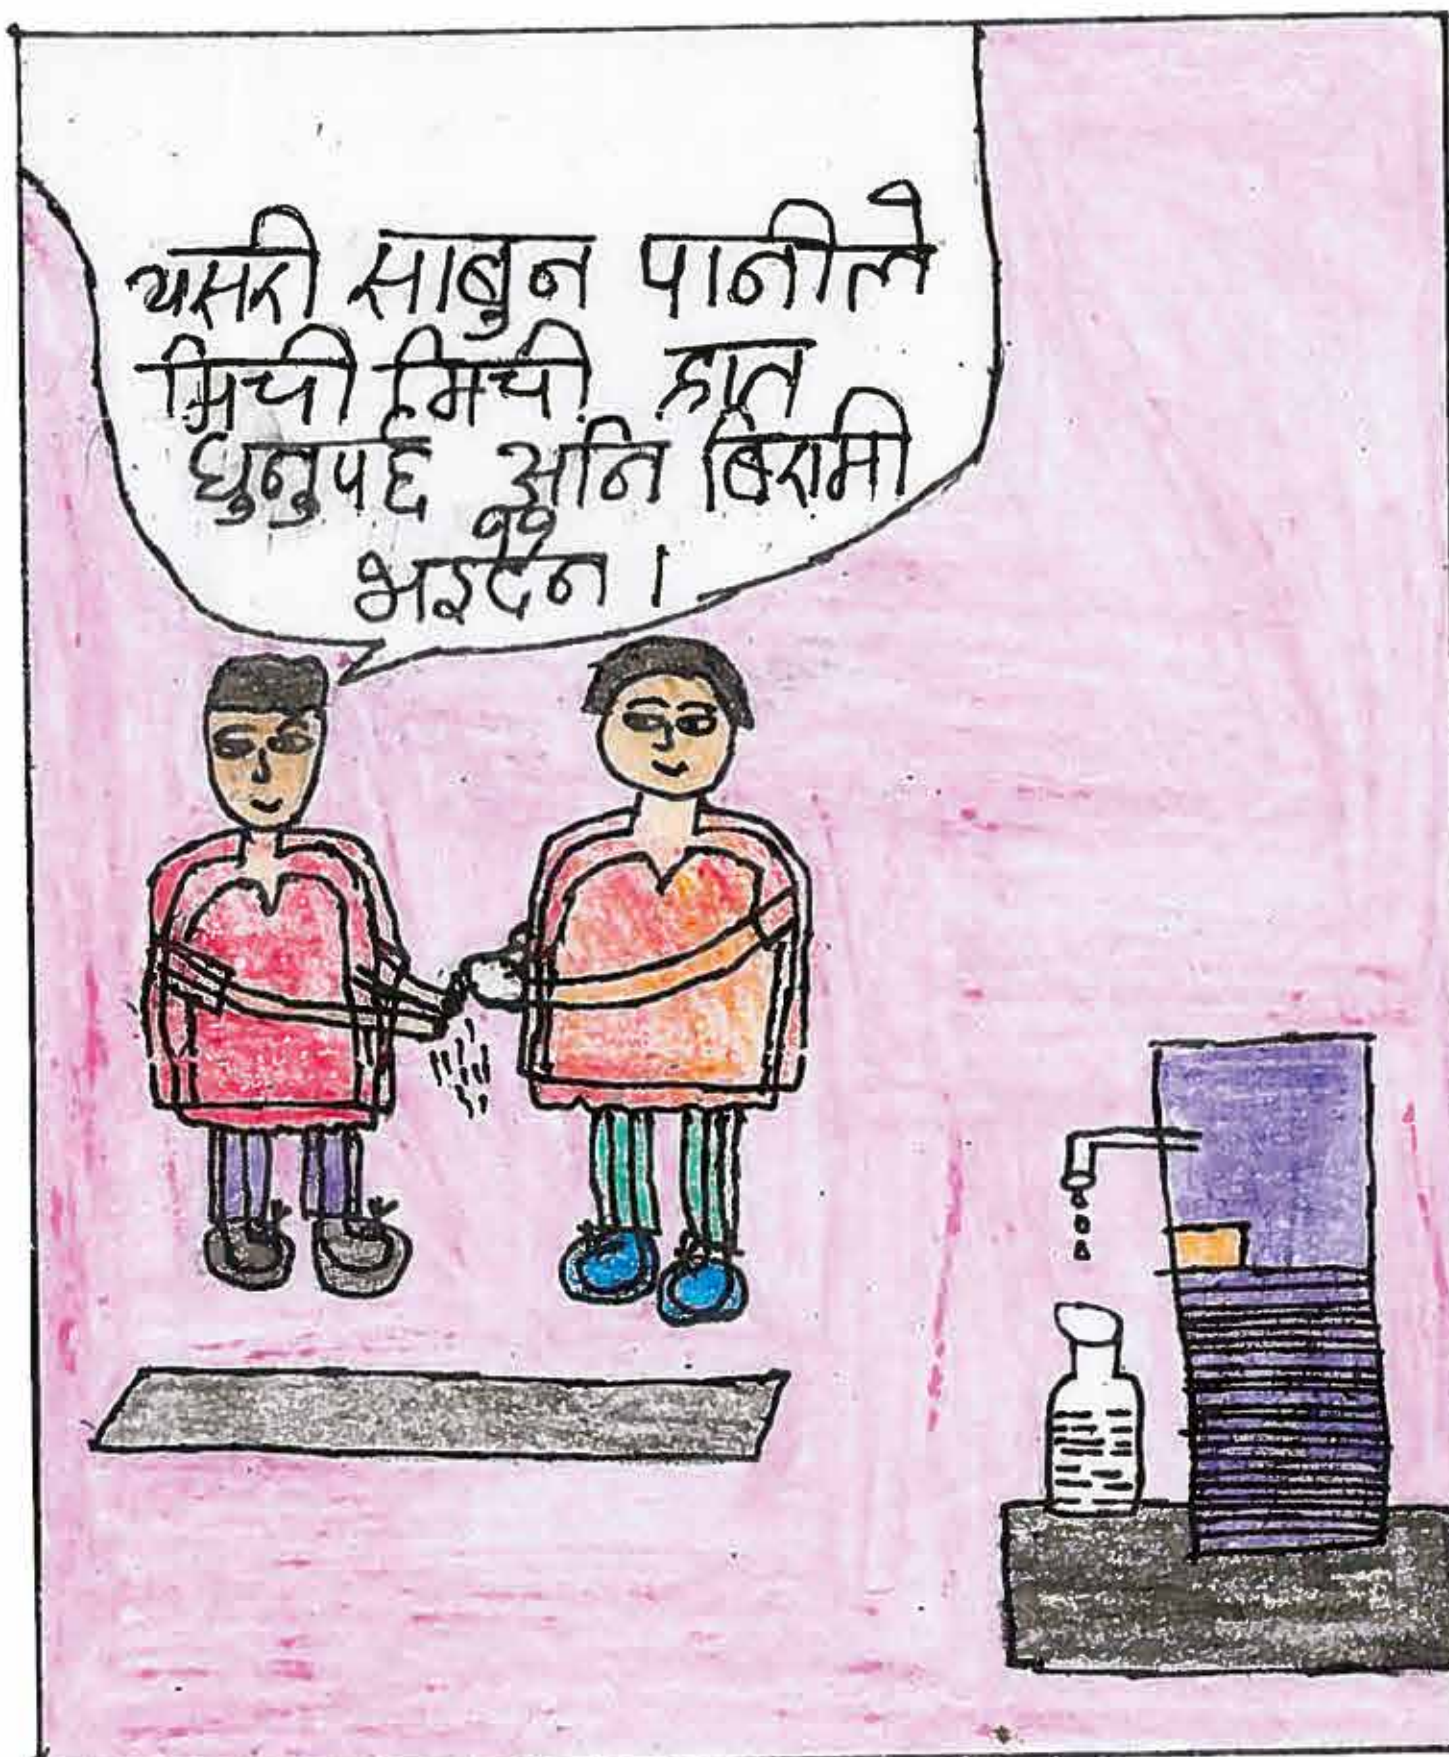 यसरी साबुन पानीले
मिची मिची हात
धुनुपर्छ अनि बिरामी
भइदैन ।